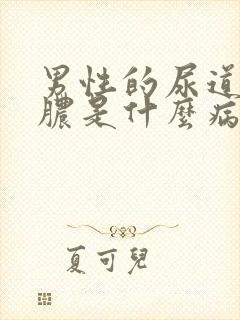 男性的尿道
膿是什麼病
夏可兒